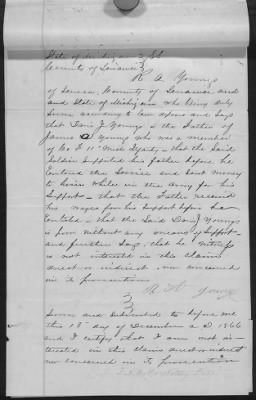 State of Michigan } SS
County of Lenawee }
R A Youngs
of Seneca, County of Lenawee and
and State of Michigan who being duly
sworn according to law says and Says
that J Youngs is the Father of
James A Youngs who was a member
of Co F 11th Mich - that the Said
Soldier Supported his father before he
Entered the Service and Sent money
to him while in the Army for his
Support - that the Father received
his wages for his Support before he
Enlisted - that the Said J Youngs
is poor without any means of Support -
and further Says, that he
is not interested in this claim
direct or indirect, nor concerned
in its prosecution
R A Youngs
Sworn and Subscribed to before me
this 13th day of December A D. 1866
and I certify that I am not in-
terested in this claim direct or indirect
nor concerned in its prosecution